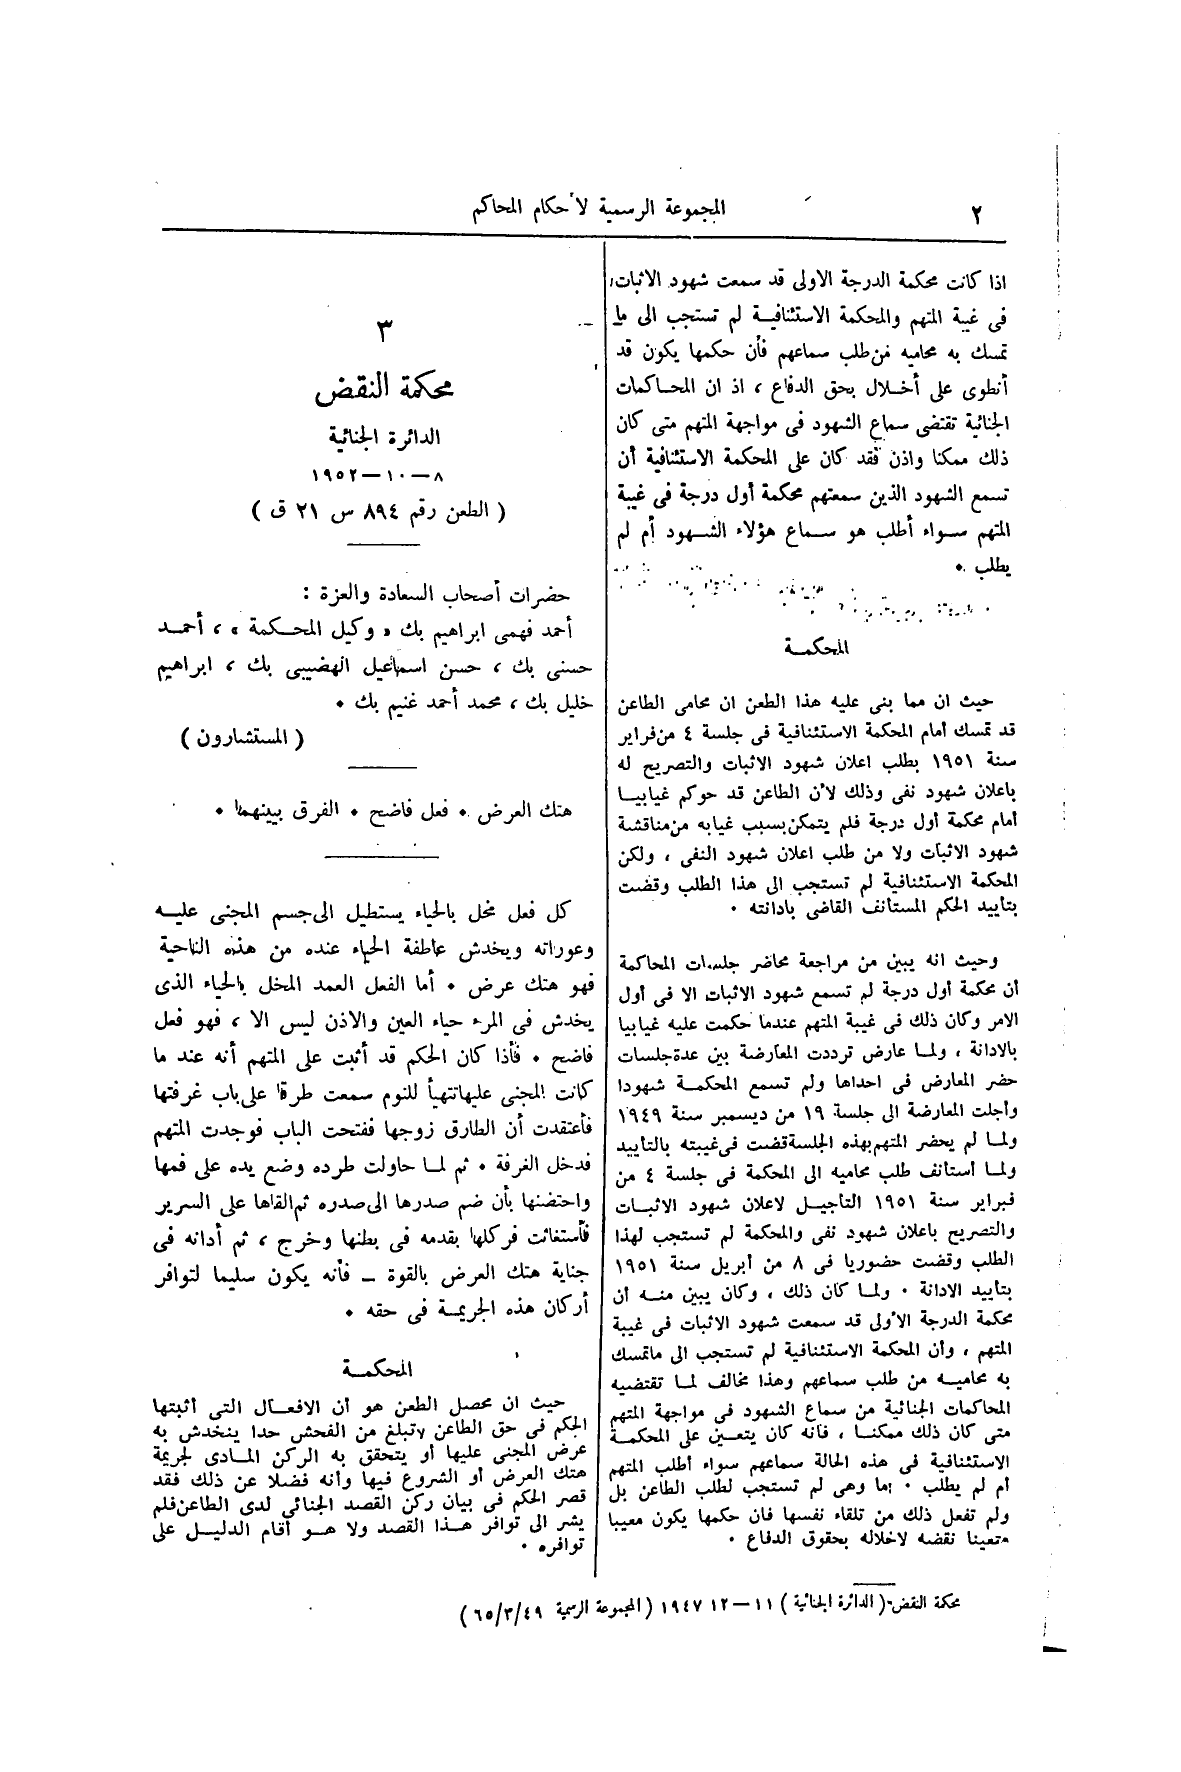 ٢
المجموعة الرسمية لأحكام المحاكم
اذا كانت محكمة الدرجة الاولى قد سمعت شهود الاثبات
فى غيبة المتهم والمحكمة الاستئنافية لم تستجب الى ما
تمسك به محاميه من طلب سماعهم فأن حكمها يكون قد
أنطوى على أخلال بحق الدفاع ، اذ ان المحاكمات
الجنائية تقتضى سماع الشهود فى مواجهة المتهم متى كان
ذلك ممكنا واذن فقد كان على المحكمة الاستئنافية أن
تسمع الشهود الذين سمعتهم محكمة أول درجة فى غيبة
المتهم سواء أطلب هو سماع هؤلاء الشهود أم لم
يطلب .
المحكمة
حيث ان مما بنى عليه هذا الطعن ان محامى الطاعن
قد تمسك أمام المحكمة الاستئنافية فى جلسة ٤ من فراير
سنة ١٩٥١ بطلب اعلان شهود الاثبات والتصريح له
باعلان شهود نفى وذلك لأن الطاعن قد حوكم غيابيا
أمام محكمة أول درجة فلم يتمكن بسبب غيابه من مناقشة
شهود الاثبات ولا من طلب اعلان شهود النفى ، ولكن
المحكمة الاستئنافية لم تستجب الى هذا الطلب وقضت
بتأييد الحكم المستانف القاضى بادانته .
وحيث انه يبين من مراجعة محاضر جلسات المحاكمة
أن محكمة أول درجة لم تسمع شهود الاثبات الا فى أول
الامر وكان ذلك فى غيبة المتهم عندما حكمت عليه غيابيا
بالادانة ، ولما عارض ترددت المعارضة بين عدة جلسات
حضر المعارض فى احداها ولم تسمع المحكمة شهودا
وأجلت المعارضة الى جلسة ١٩ من ديسمبر سنة ١٩٤٩
ولما لم يحضر المتهم بهذه الجلسة قضت فى غيبته بالتأييد
ولما أستانف طلب محاميه الى المحكمة فى جلسة ٤ من
فبراير سنة ١٩٥١ التأجيل لاعلان شهود الاثبات
والتصريح باعلان شهود نفى والمحكمة لم تستجب لهذا
الطلب وقضت حضوريا فى ٨ من أبريل سنة ١٩٥١
بتاييد الادانة . ولما كان ذلك ، وكان يبين منه أن
محكمة الدرجة الأولى قد سمعت شهود الاثبات فى غيبة
المتهم ، وأن المحكمة الاستئنافية لم تستجب الى ماتمسك
به محاميه من طلب سماعهم وهذا مخالف لما تقتضيه
المحاكمات الجنائية من سماع الشهود فى مواجهة المتهم
متى كان ذلك ممكنا ، فانه كان يتعين على المحكمة
الاستئنافية فى هذه الحالة سماعهم سواء أطلب المتهم
أم لم يطلب . اما وهى لم تستجب لطلب الطاعن بل
ولم تفعل ذلك من تلقاء نفسها فان حكمها يكون معيبا
متعينا نقضه لاخلاله بحقوق الدفاع .
٣
محكمة النقض
الدائرة الجنائية
٨ — ١٠ — ١٩٥٢
( الطعن رقم ٨٩٤ س ٢١ ق )
حضرات أصحاب السعادة والعزة :
أحمد فهمى ابراهيم بك « وكيل المحكمة » ، أحمد
حسنى بك ، حسن اسماعيل الهضيبى بك ، ابراهيم
خليل بك ، محمد أحمد غنيم بك .
( المستشارون )
هتك العرض . فعل فاضح . الفرق بينهما .
كل فعل مخل بالحياء يستطيل الى جسم المجنى عليه
وعوراته ويخدش عاطفة الحياء عنده من هذه الناحية
فهو هتك عرض . أما الفعل العمد المخل بالحياء الذى
يخدش فى المرء حياء العين والاذن ليس الا ، فهو فعل
فاضح . فأذا كان الحكم قد أثبت على المتهم أنه عند ما
كانت المجنى عليها تتهيأ للنوم سمعت طرقا على باب غرفتها
فأعتقدت أن الطارق زوجها ففتحت الباب فوجدت المتهم
فدخل الغرفة . ثم لما حاولت طرده وضع يده على فمها
واحتضنها بأن ضم صدرها الى صدره ثم القاها على السرير
فأستغاثت فركلها بقدمه فى بطنها وخرج ، ثم أدانه فى
جناية هتك العرض بالقوة ــ فأنه يكون سليما لتوافر
أركان هذه الجريمة فى حقه .
المحكمة
حيث ان محصل الطعن هو أن الافعال التى أثبتها
الحكم فى حق الطاعن لاتبلغ من الفحش حدا ينخدش به
عرض المجنى عليها أو يتحقق به الركن المادى لجريمة
هتك العرض أو الشروع فيها وأنه فضلا عن ذلك فقد
قصر الحكم فى بيان ركن القصد الجنائى لدى الطاعن فلم
يشر الى توافر هذا القصد ولا هو أقام الدليل على
توافره .
محكمة النقض ( الدائرة الجنائية ) ١١ — ١٢ ١٩٤٧ ( المجموعة الرسمية ٦٥/٣/٤٩ )